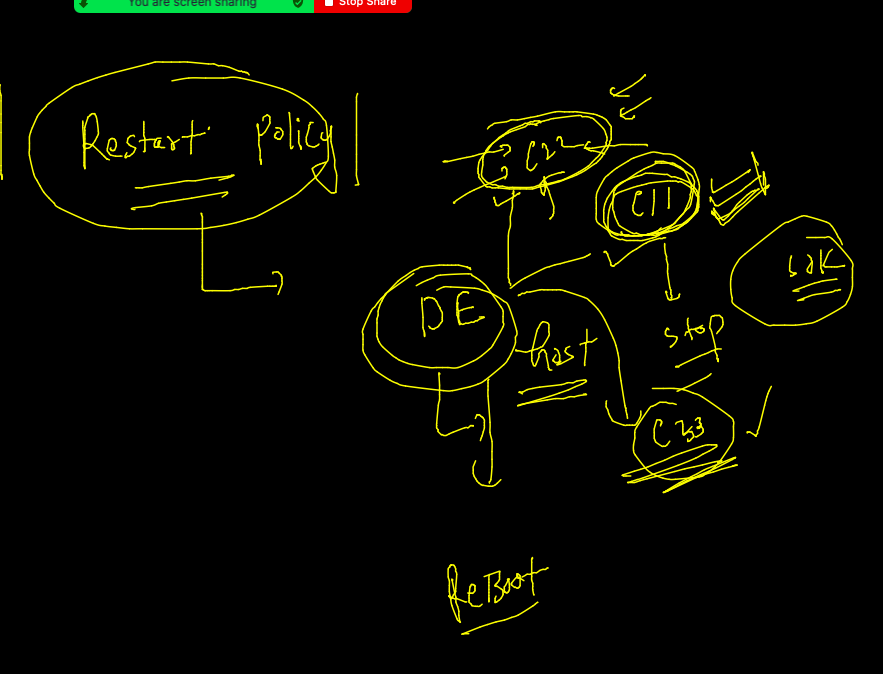 You are screen sharing
Stop Share
Restart Policy
C22
C11
DE
host
stop
C33
ReBoot